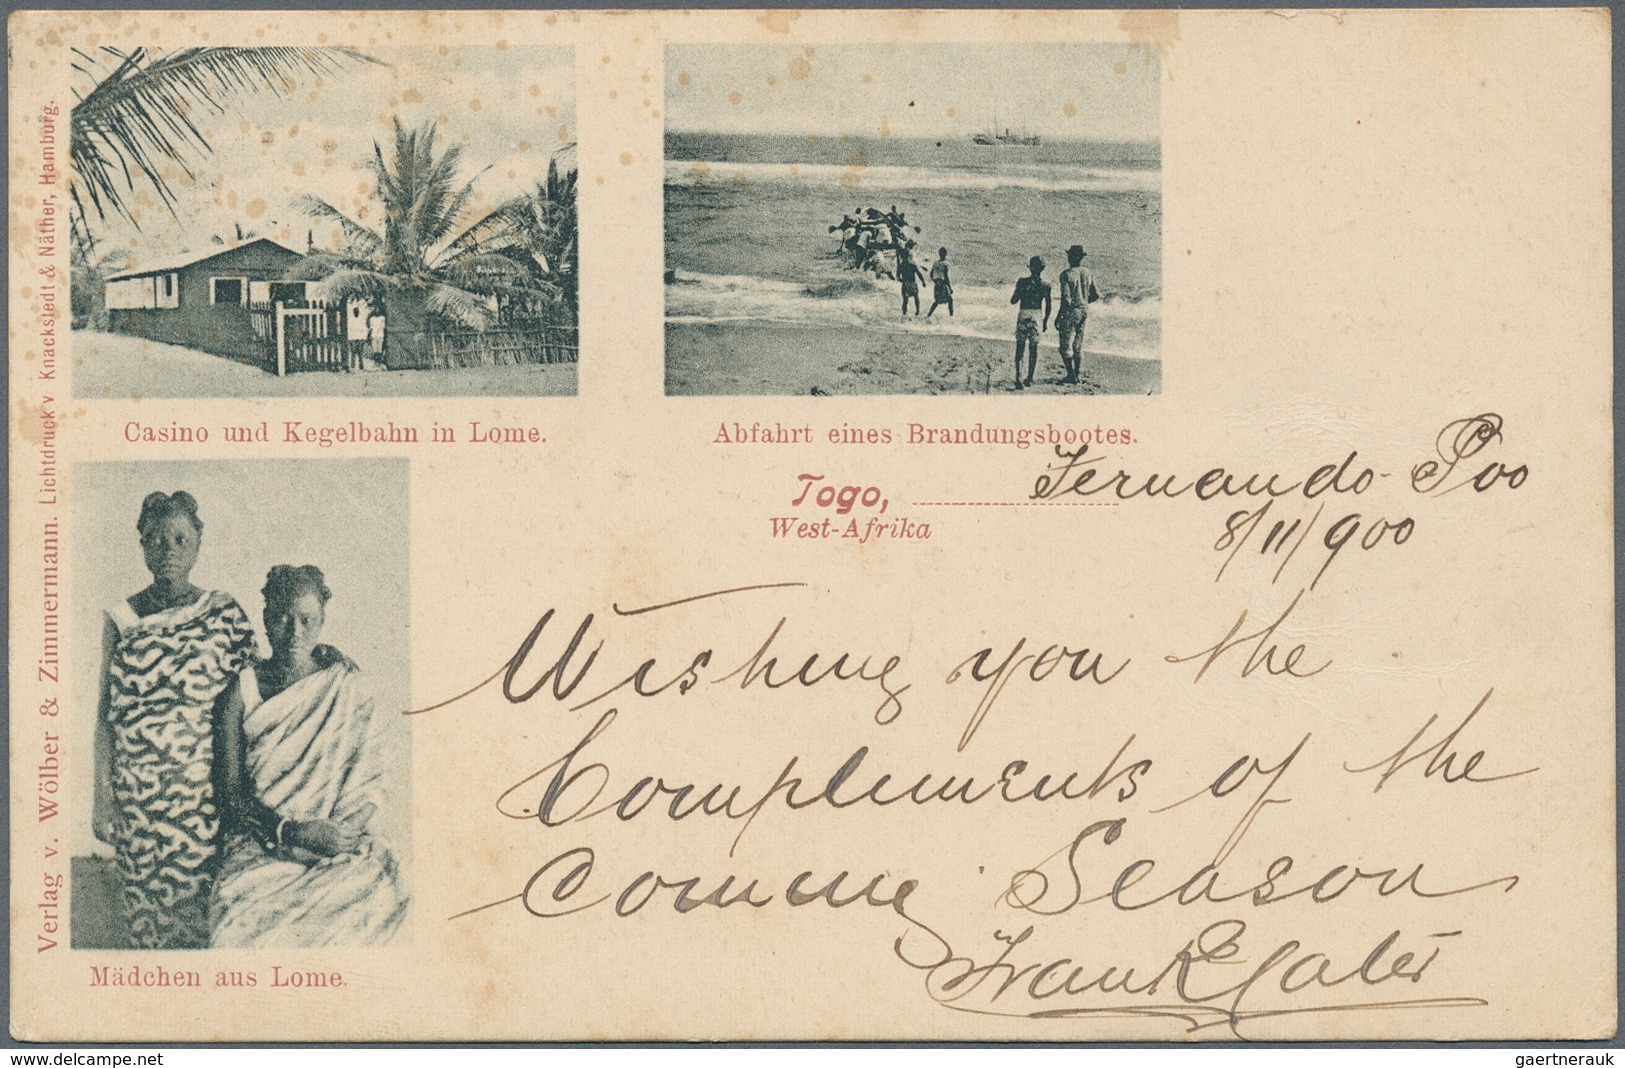 Verlag v. Wölber & Zimmermann. Lichtdruck v Knackstedt & Näther, Hamburg.
Casino und Kegelbahn in Lome.
Abfahrt eines Brandungsbootes.
Togo, Fernando Poo
West-Afrika
8/11/900
Wishing you the
Compliments of the
Coming Season
Frank
Mädchen aus Lome.
www.delcampe.net
gaertnerauk